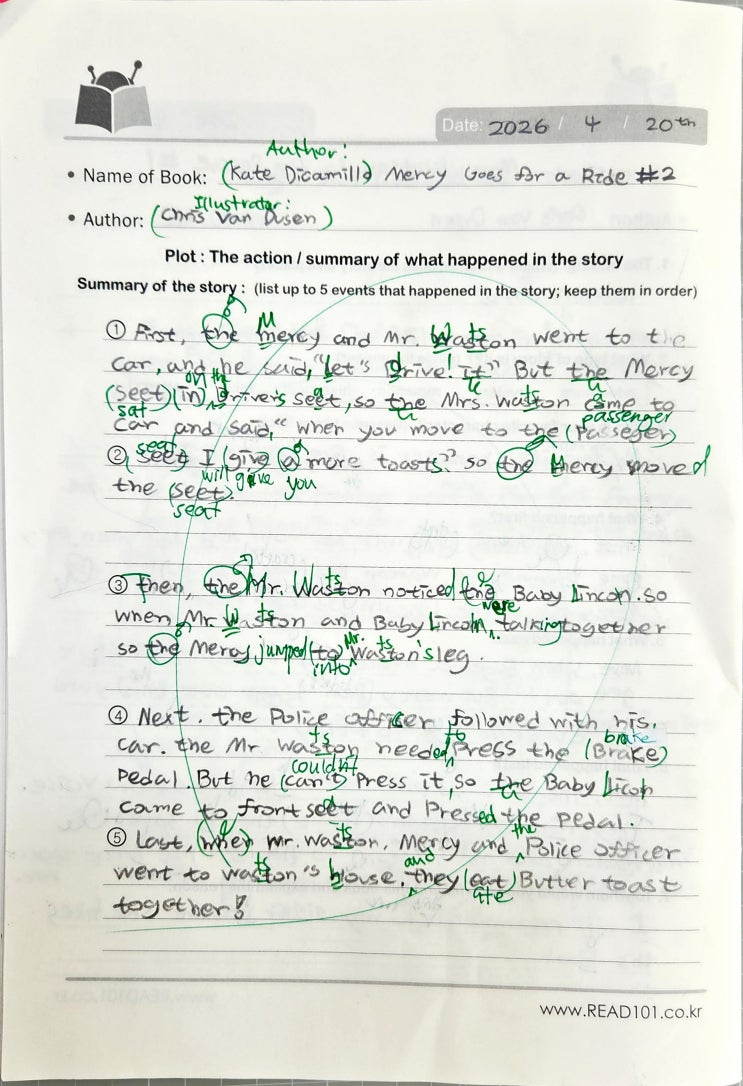 Date: 2026 / 4 / 20th
Author:
• Name of Book: (Kate Dicamillo) Mercy Goes for a Ride #2
Illustrator:
• Author: (Chris Van Dusen)
Plot : The action / summary of what happened in the story
Summary of the story : (list up to 5 events that happened in the story; keep them in order)
M
① First, the mercy and Mr. Waston went to the
ts
car, and he said, "let's Drive! It" But the Mercy
on the
(seet) (in) Driver's seet, so the Mrs. Waston came to
sat a ts passenger
car and said, "when you move to the (Passeger)
seat
② (seet) I (give a more toasts" so the Mercy moved
will give you
the (seet)
seat
③ Then, the Mr. Waston noticed the Baby Lincon. so
ts
were
when Mr. Waston and Baby Lincoln talking together
ts
Mr. ts
so the Mercy jumped (to) Waston's leg.
into
④ Next. the Police officer followed with his.
ts to brake
car. the Mr. Waston needed Press the (Brake)
couldn't
Pedal. But he (can't) Press it, so the Baby Licon
came to front seet and Pressed the pedal.
ts the
⑤ Last, (when) mr. waston, Mercy and Police officer
ts and
went to waston's house, they (eat) Butter toast
ate
together!
www.READ101.co.kr